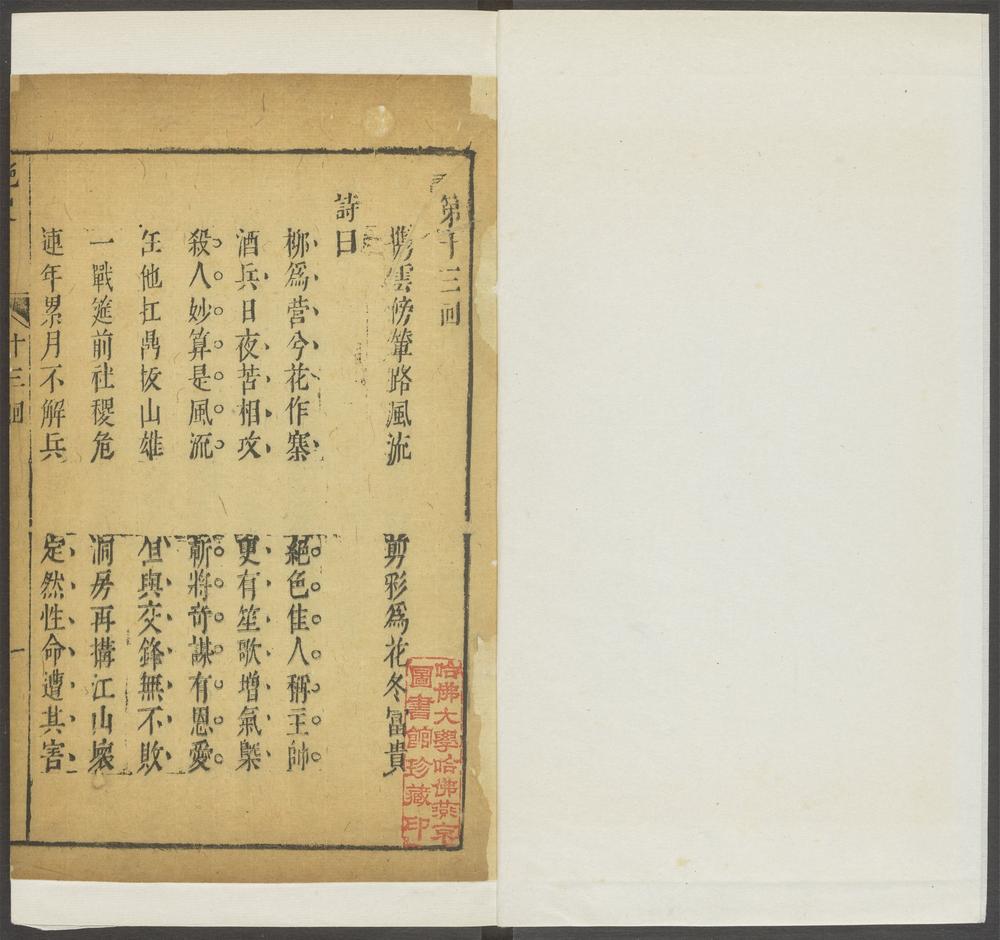 第十三回
携雲傍輦路風流　剪彩為花冬富貴
詩曰
柳為營兮花作寨　絕色佳人稱主帥
酒兵日夜苦相攻　更有笙歌增氣槩
殺人妙算是風流　斬將奇謀有恩愛
任他扛鼎拔山雄　但與交鋒無不敗
一戰筵前社稷危　洞房再搆江山壞
連年累月不解兵　定然性命遭其害
十三回
一
哈佛大學哈佛燕京
圖書館珍藏印